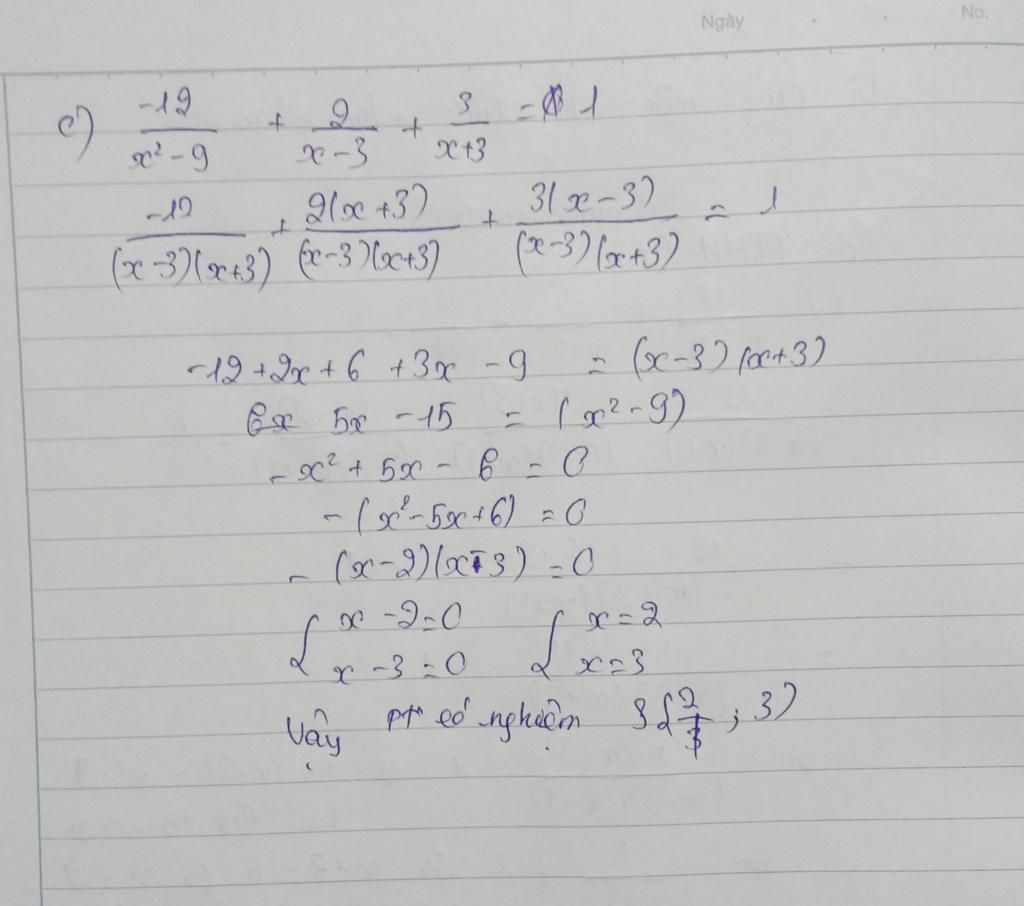 Ngày No.
c) -12/(x² - 9) + 2/(x - 3) + 3/(x+3) = 1
-12/((x-3)(x+3)) + 2(x+3)/((x-3)(x+3)) + 3(x-3)/((x-3)(x+3)) = 1
-12 + 2x + 6 + 3x - 9 = (x-3)(x+3)
5x - 15 = (x² - 9)
-x² + 5x - 6 = 0
-(x² - 5x + 6) = 0
-(x-2)(x-3) = 0
{ x - 2 = 0 { x = 2
x - 3 = 0 x = 3
Vậy pt có nghiệm S{2; 3)